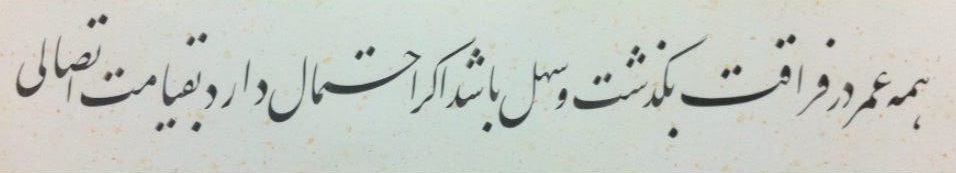 همه عمر در فراقت بگذشت و سهل باشد اگر احتمال دارد بقیامت اتصالی